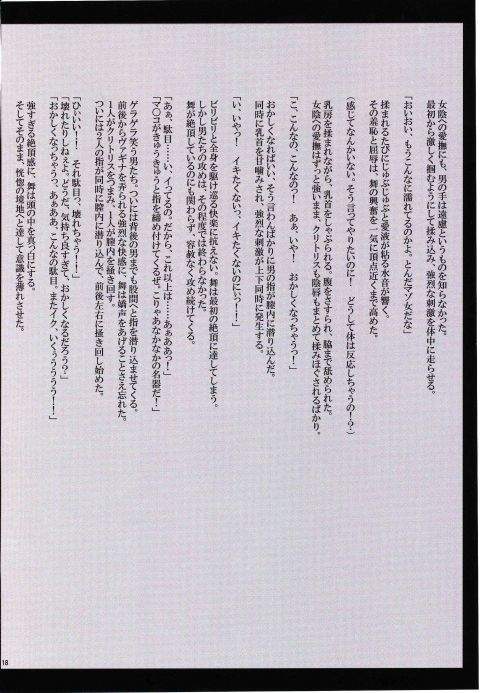 女陰への愛撫にも、男の手は遠慮というものを知らなかった。
最初から激しく掴むようにして揉み込み、強烈な刺激を体中に走らせる。
「おいおい、もうこんなに濡れてるのかよ。とんだマゾ女だな」
揉まれるたびにじゅぷじゅぷと愛液が粘る水音が響く。
その羞恥と屈辱は、舞の興奮を一気に頂点近くまで高めた。
(感じてなんかいない。そう言ってやりたいのに！　どうして体は反応しちゃうの！？)
乳房を揉まれながら、乳首をしゃぶられる。腹をさすられ、脇まで舐められた。
女陰への愛撫はずっと強いまま、クリトリスも陰唇もまとめて揉みほぐされるばかり。
「こ、こんなの、こんなのっ！　あぁ、いや！　おかしくなっちゃうっ！」
おかしくなればいい、そう言わんばかりに男の指が膣内に潜り込んだ。
同時に乳首を甘噛みされ、強烈な刺激が上下同時に発生する。
「い、いやっ！　イキたくないっ、イキたくないのにぃっ！！」
ビリビリと全身を駆け巡る快楽に抗えない。舞は最初の絶頂に達してしまう。
しかし男たちの攻めは、その程度では終わらなかった。
舞が絶頂しているのにも関わらず、容赦なく攻め続けてくる。
「あぁ、駄目……い、イってるの。だから、これ以上は……あぁああっ！」
「マ〇コがきゅうきゅうと指を締め付けてくるぜ。こりゃあなかなかの名器だ！」
ゲラゲラ笑う男たち。ついには背後の男までも股間へと指を潜り込ませてくる。
前後からヴァギナを弄られる強烈な快感に、舞は嬌声をあげることさえ忘れた。
1人がクリトリスをつまみ、1人が膣内を掻き回す。
ついには2人の指が同時に膣内に潜り込んで、前後左右に掻き回し始めた。
「ひぃいい！　それ駄目っ、壊れちゃう！！」
「壊れたりしねぇよ。どうだ、気持ち良すぎて、おかしくなるだろう？」
「おかしくなっちゃうっ、あぁああ、こんなの駄目、またイク、いくぅぅぅぅう！！」
強すぎる絶頂感に、舞は頭の中を真っ白にする。
そしてそのまま、恍惚の境地へと達して意識を薄れさせた。
18